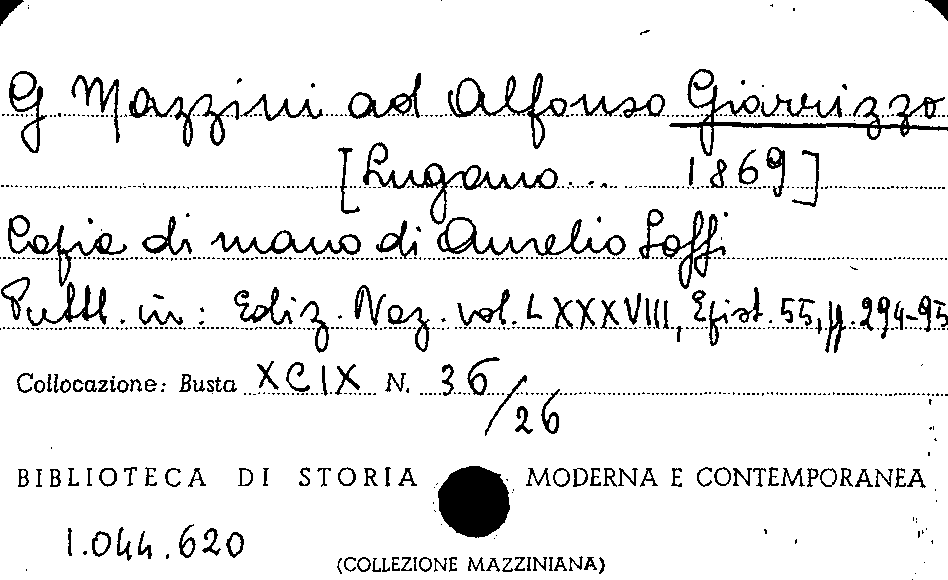 G. Mazzini ad Alfonso Giarrizzo
[Lugano... 1869]
Copia di mano di Aurelio Saffi
Pubbl. in: Ediz. Naz. vol. LXXXVIII, Epist. 55, pp. 294-95
Collocazione: Busta XCIX N. 36/26
BIBLIOTECA DI STORIA MODERNA E CONTEMPORANEA
1.044.620
(COLLEZIONE MAZZINIANA)